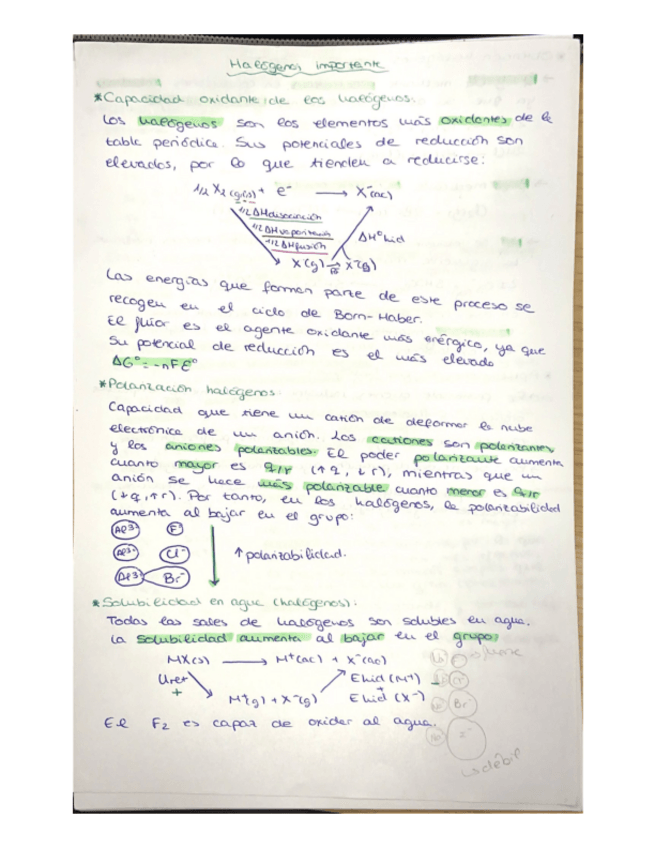 Halógenos importante
*Capacidad oxidante de los halógenos:
Los halógenos son los elementos más oxidantes de la
tabla periódica. Sus potenciales de reducción son
elevados, por lo que tienden a reducirse:
1/2 X2(g,l,s) + e- → X-(ac)
1/2 ΔHdisociación
1/2 ΔHvaporización
1/2 ΔHfusión
ΔHºhid
X(g) → X-(g)
Las energías que forman parte de este proceso se
recogen en el ciclo de Born-Haber.
El flúor es el agente oxidante más enérgico, ya que
su potencial de reducción es el más elevado
ΔGº = -nFEº
*Polarización halógenos:
Capacidad que tiene un catión de deformar la nube
electrónica de un anión. Los cationes son polarizantes
y los aniones polarizables. El poder polarizante aumenta
cuanto mayor es q/r (↑q, ↓r), mientras que un
anión se hace más polarizable cuanto menor es q/r
(↓q, ↑r). Por tanto, en los halógenos, la polarizabilidad
aumenta al bajar en el grupo:
Al3+ F-
Al3+ Cl-
Al3+ Br-
↑ polarizabilidad.
*Solubilidad en agua (halógenos):
Todas las sales de halógenos son solubles en agua.
La solubilidad aumenta al bajar en el grupo:
MX(s) → M+(ac) + X-(ac)
Uret
+
M+(g) + X-(g)
Ehid (M+)
+
Ehid (X-)
F-
Cl-
Br-
I-
↳ débil
El F2 es capaz de oxidar al agua.